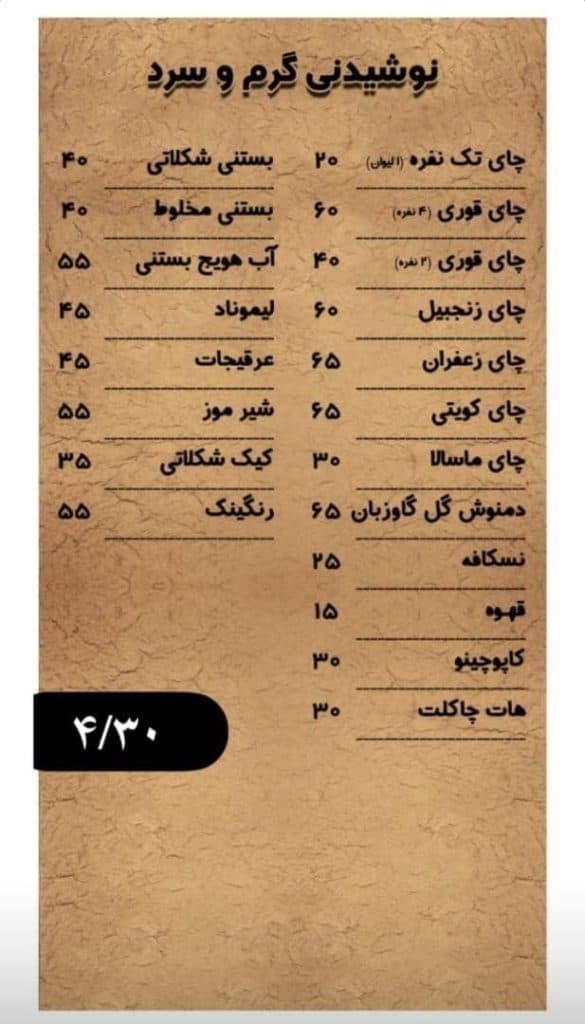 نوشیدنی گرم و سرد
چای تک نفره (۱ لیوان) ۲۰
چای قوری (۴ نفره) ۶۰
چای قوری (۲ نفره) ۴۰
چای زنجبیل ۶۰
چای زعفران ۶۵
چای کویتی ۶۵
چای ماسالا ۳۰
دمنوش گل گاوزبان ۶۵
نسکافه ۲۵
قهوه ۱۵
کاپوچینو ۳۰
هات چاکلت ۳۰
بستنی شکلاتی ۴۰
بستنی مخلوط ۴۰
آب هویج بستنی ۵۵
لیموناد ۴۵
عرقیجات ۴۵
شیر موز ۵۵
کیک شکلاتی ۳۵
رنگینک ۵۵
۴/۳۰